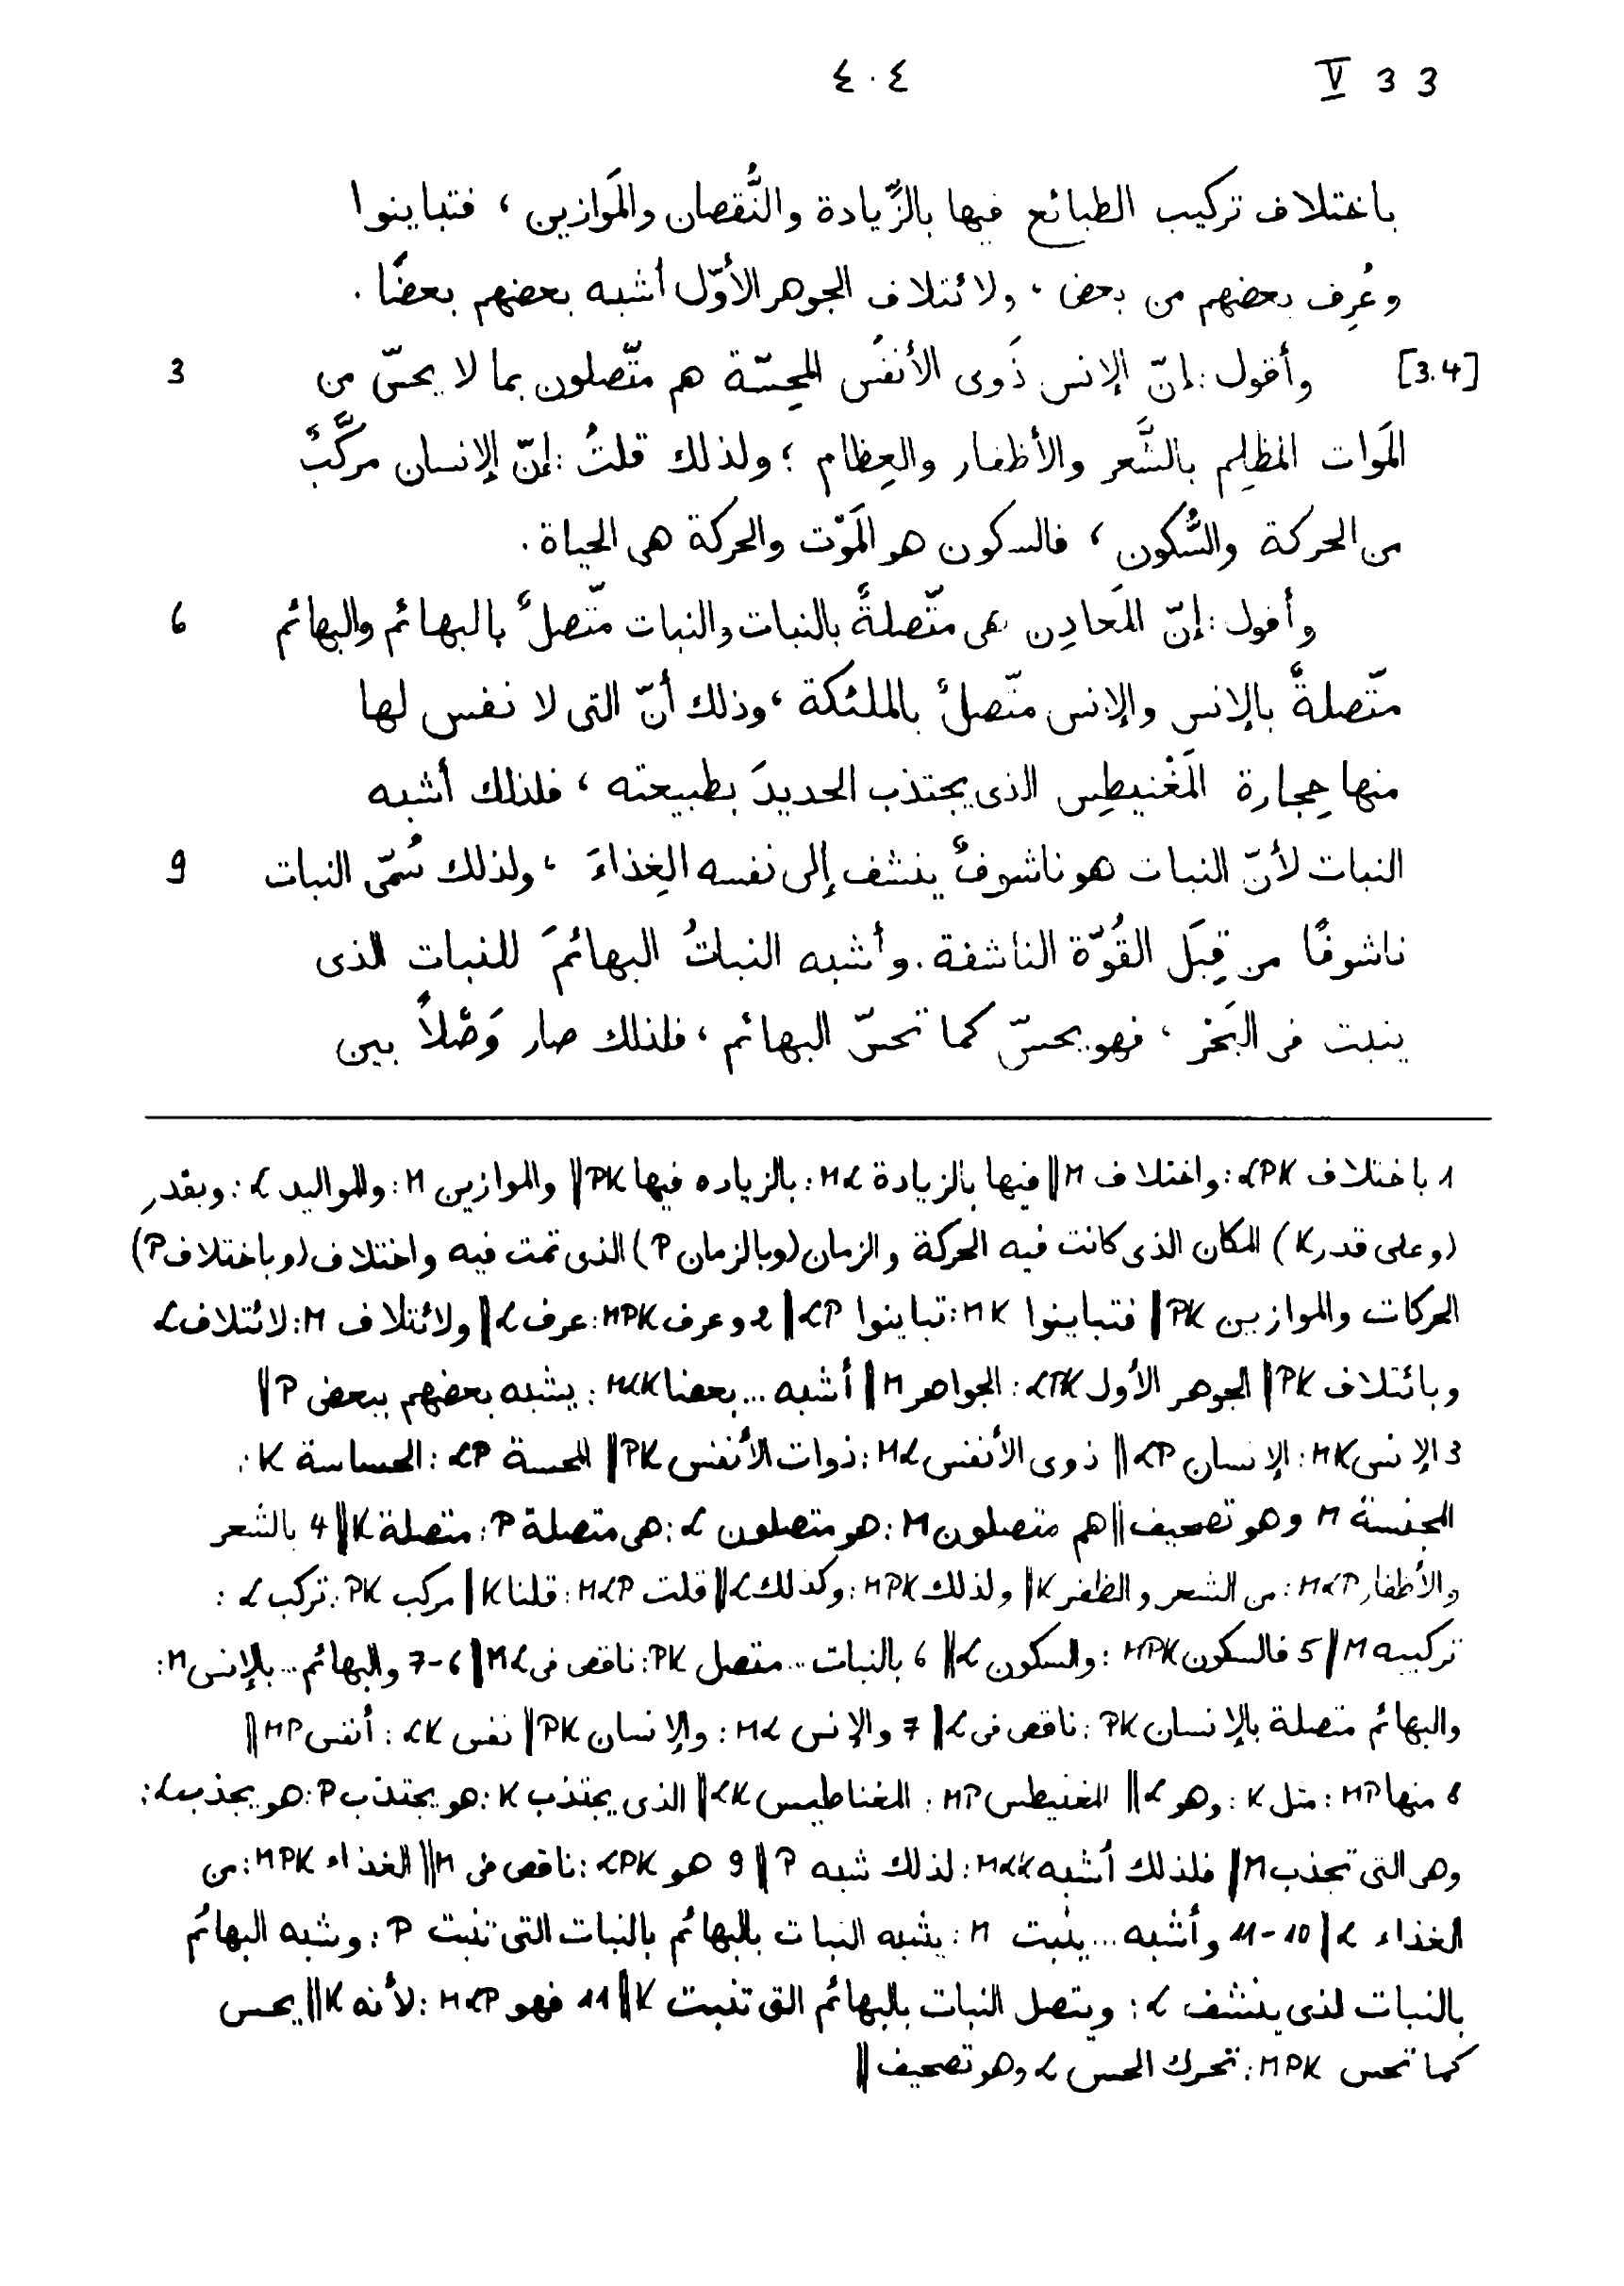 V 33 ٤٠٤
باختلاف تركيب الطبائع فيها بالزِّيادة والنُّقصان والمَوازين ، فتباينوا
وعُرِف بعضهم من بعض ، ولائتلاف الجوهر الأوّل أشبه بعضهم بعضًا .
[3.4] وأقول : إنّ الإنس ذَوى الأنفُس المحِسّة هم متّصلون بما لا يحسّ من 3
المَوات المظلِم بالشَّعر والأظفار والعِظام ؛ ولذلك قلتُ : إنّ الإنسان مركَّبٌ
من الحركة والسُّكون ، فالسكون هو المَوْت والحركة هى الحياة .
وأقول : إنّ المَعادِن هى متّصلةٌ بالنبات والنبات متّصلٌ بالبهائم والبهائم 6
متّصلةٌ بالإنس والإنس متّصلٌ بالملئكة ، وذلك أنّ التى لا نفس لها
منها حِجارة المَغْنيطِس الذى يجتذب الحديدَ بطبيعته ، فلذلك أشبه
النبات لأنّ النبات هو ناشوفٌ ينشف إلى نفسه الغِذاءَ ، ولذلك سُمّى النبات 9
ناشوفًا من قِبَل القُوّة الناشفة . وأشبه النباتُ البهائمَ للنبات الذى
ينبت فى البَحْر ، فهو يحسّ كما تحسّ البهائم ، فلذلك صار وَصْلاً بين
1 باختلاف LPK : واختلاف M || فيها بالزيادة ML : بالزياده فيها PK || والموازين M : والمواليد L : وبقدر
(وعلى قدر K) المكان الذى كانت فيه الحركة والزمان (وبالزمان P) الذى تمت فيه واختلاف (وباختلاف P)
الحركات والموازين PK || فتباينوا MK : تباينوا LP || 2 وعرف MPK : عرف L || ولائتلاف M : لائتلاف L
وبائتلاف PK || الجوهر الأول LPK : الجواهر M || أشبه ... بعضا MLK : يشبه بعضهم ببعض P ||
3 الإنس MK : الإنسان LP || ذوى الأنفس ML : ذوات الأنفس PK || المحسة LP : الحساسة K :
المجنسة M وهو تصحيف || هم متصلون M : هو متصلون L : هى متصلة P : متصلة K || 4 بالشعر
والأظفار MLP : من الشعر والظفر K || ولذلك MPK : وكذلك L || قلت MLP : قلنا K || مركب PK : تركب L :
تركيبه M || 5 فالسكون MPK : والسكون L || 6 بالنبات ... متصل PK : ناقص فى ML || 6-7 والبهائم ... بالإنس M :
والبهائم متصلة بالإنسان PK : ناقص فى L || 7 والإنس ML : والإنسان PK || نفس LK : أنفس MP ||
8 منها MP : مثل K : وهو L || المغنيطس MP : المغناطيس LK || الذى يجتذب K : هو يجتذب P : هو يجذب L :
وهى التى تجذب M || فلذلك أشبه MLK : لذلك شبه P || 9 هو LPK : ناقص فى M || الغذاء MPK : من
الغذاء L || 10-11 وأشبه ... ينبت M : يشبه النبات بالبهائم بالنبات التى تنبت P : وشبه البهائم
بالنبات لذى ينشف L : ويتصل النبات بالبهائم التى تنبت K || 11 فهو MLP : لأنه K || يحس
كما تحس MPK : تحرك الحس L وهو تصحيف ||